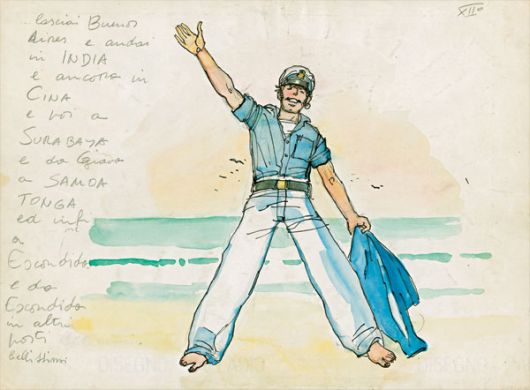 XII°
...lasciai Buenos
Aires e andai
in INDIA
e ancora in
CINA
e poi a
SURABAYA
e da Giava
a SAMOA
TONGA
ed infi
ne
a
Escondida
e da
Escondida
in altri
posti
bellissimi